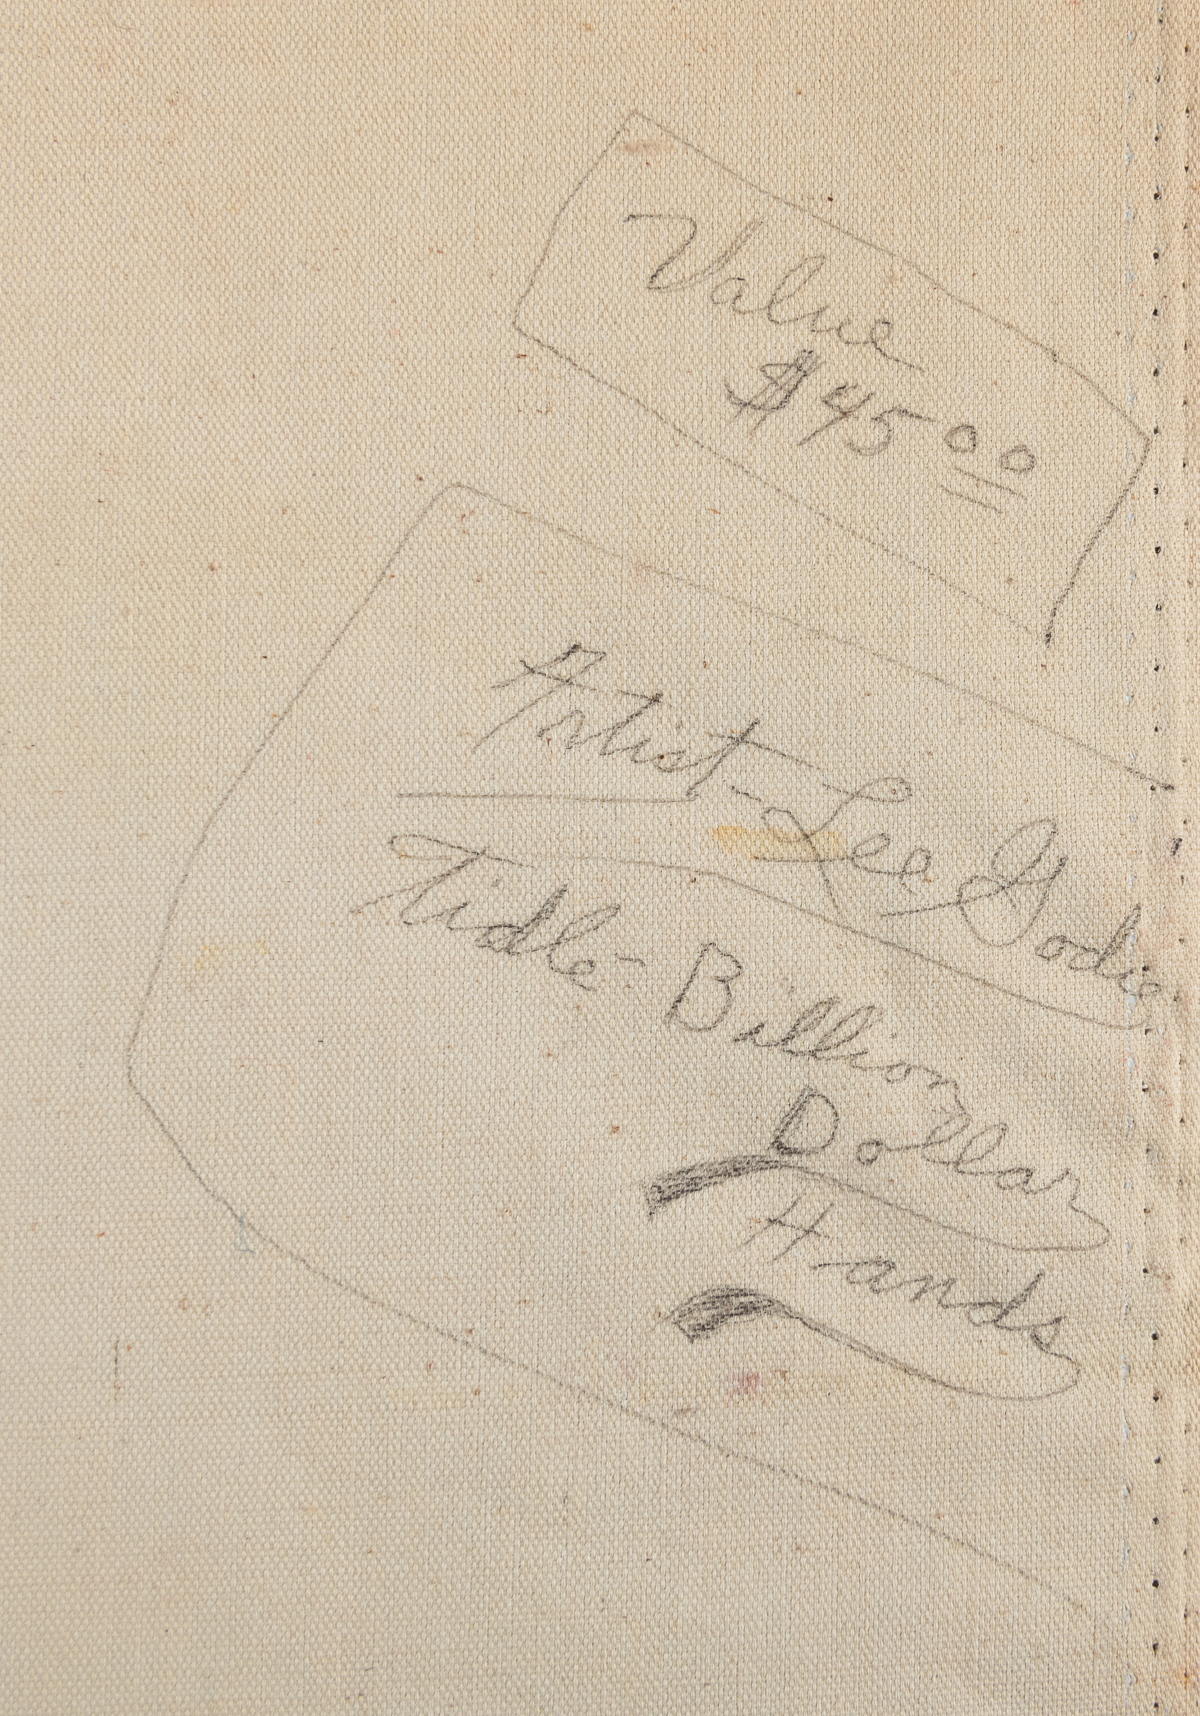 Value
$45 00
Artist-Lee Godie
Tidle- Billion
Dollar
Hands